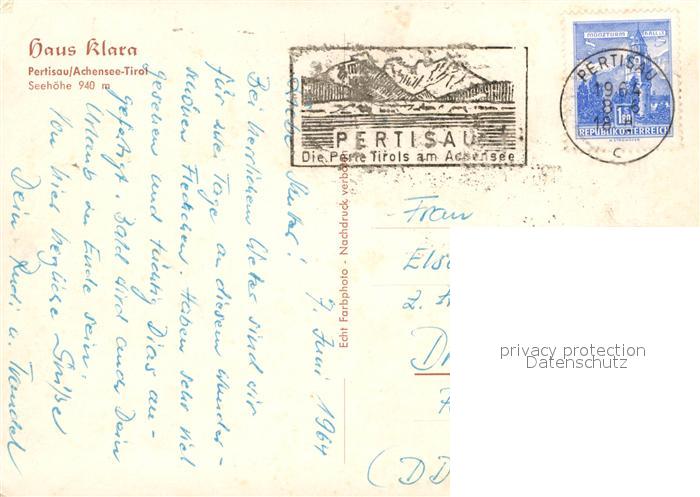 Haus Klara
Pertisau/Achensee-Tirol
Seehöhe 940 m
PERTISAU
Die Perle Tirols am Achensee
MÜNZTURM HALL
1.80
REPUBLIK ÖSTERREICH
PERTISAU
1964
8. 6
18 H
C
Echt Farbphoto - Nachdruck verboten
7. Juni 1964
Bei herrlichem Wetter sind wir
für zwei Tage an diesem wunder-
schönen Fleckchen. Haben sehr viel
gesehen und tüchtig Dias au-
gefertigt. Bald wird auch Dein
Urlaub zu Ende sein.
Von hier herzliche Grüße
Dein Rudi u.
Frau
Els
z.
D
(DD
privacy protection
Datenschutz